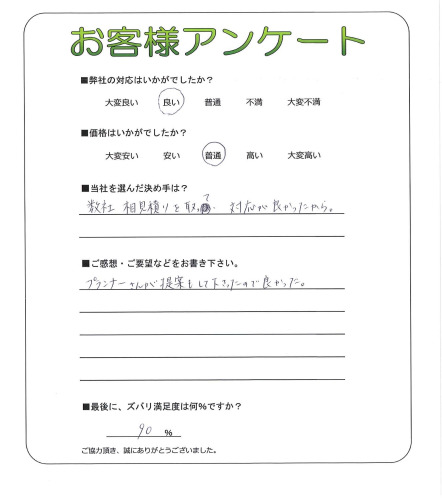 お客様アンケート
■弊社の対応はいかがでしたか？
大変良い 良い 普通 不満 大変不満
■価格はいかがでしたか？
大変安い 安い 普通 高い 大変高い
■当社を選んだ決め手は？
数社 相見積りを取って 対応が良かったから。
■ご感想・ご要望などをお書き下さい。
プランナーさんが提案もして下さったので良かった。
■最後に、ズバリ満足度は何％ですか？
90 ％
ご協力頂き、誠にありがとうございました。